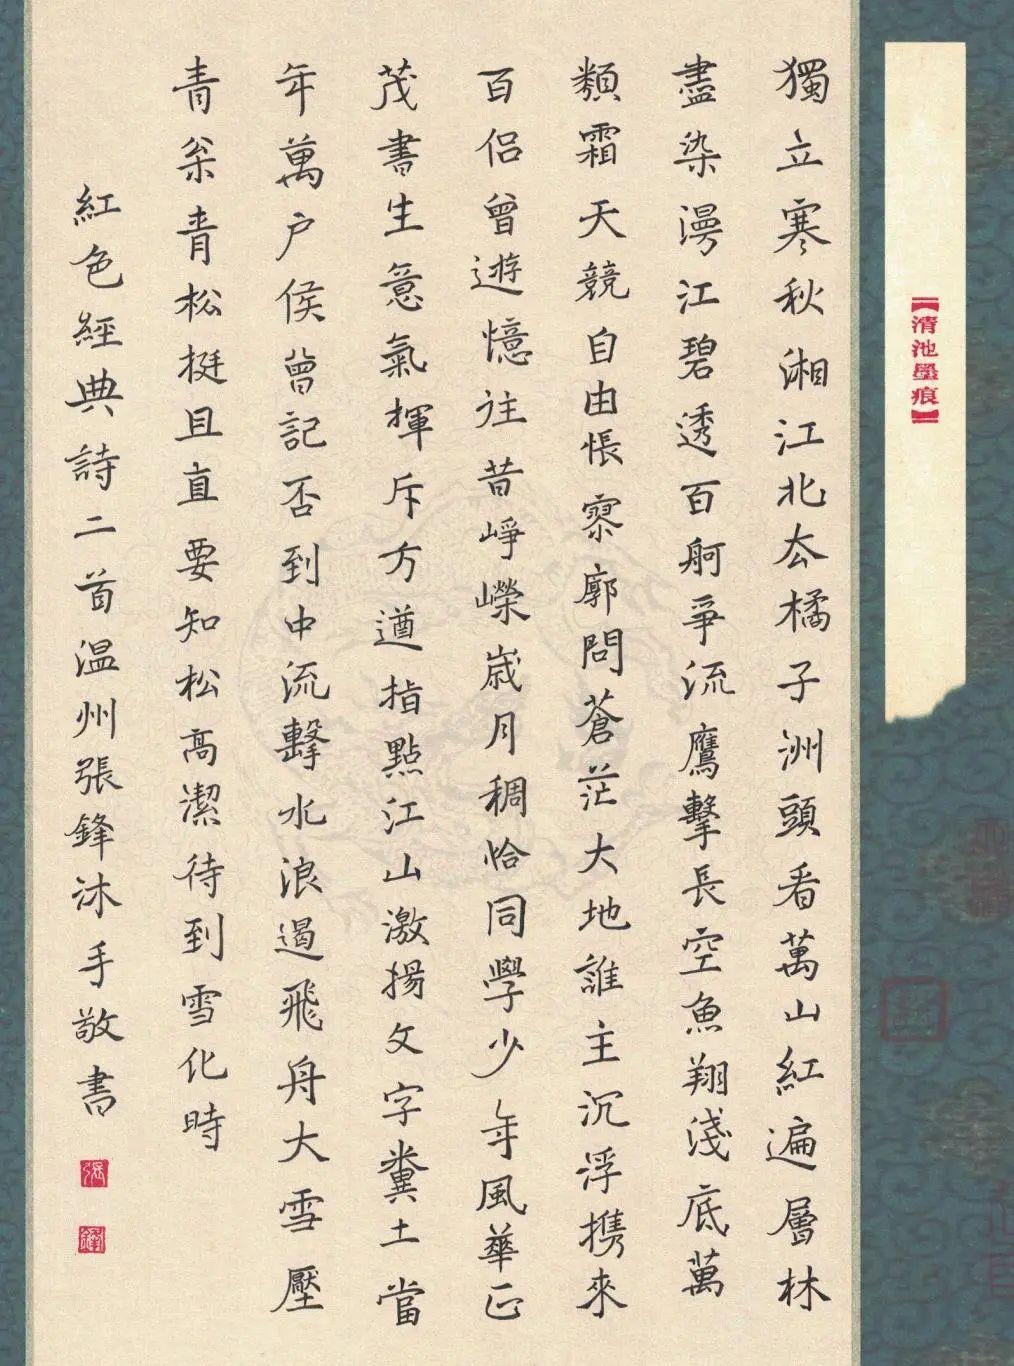 【清池墨痕】
獨立寒秋湘江北去橘子洲頭看萬山紅遍層林
盡染漫江碧透百舸爭流鷹擊長空魚翔淺底萬
類霜天競自由悵寥廓問蒼茫大地誰主沉浮携來
百侣曾遊憶往昔崢嶸歲月稠恰同學少年風華正
茂書生意氣揮斥方遒指點江山激揚文字糞土當
年萬户侯曾記否到中流擊水浪遏飛舟大雪壓
青松青松挺且直要知松高潔待到雪化時
紅色經典詩二首温州張鋒沐手敬書
張
鋒